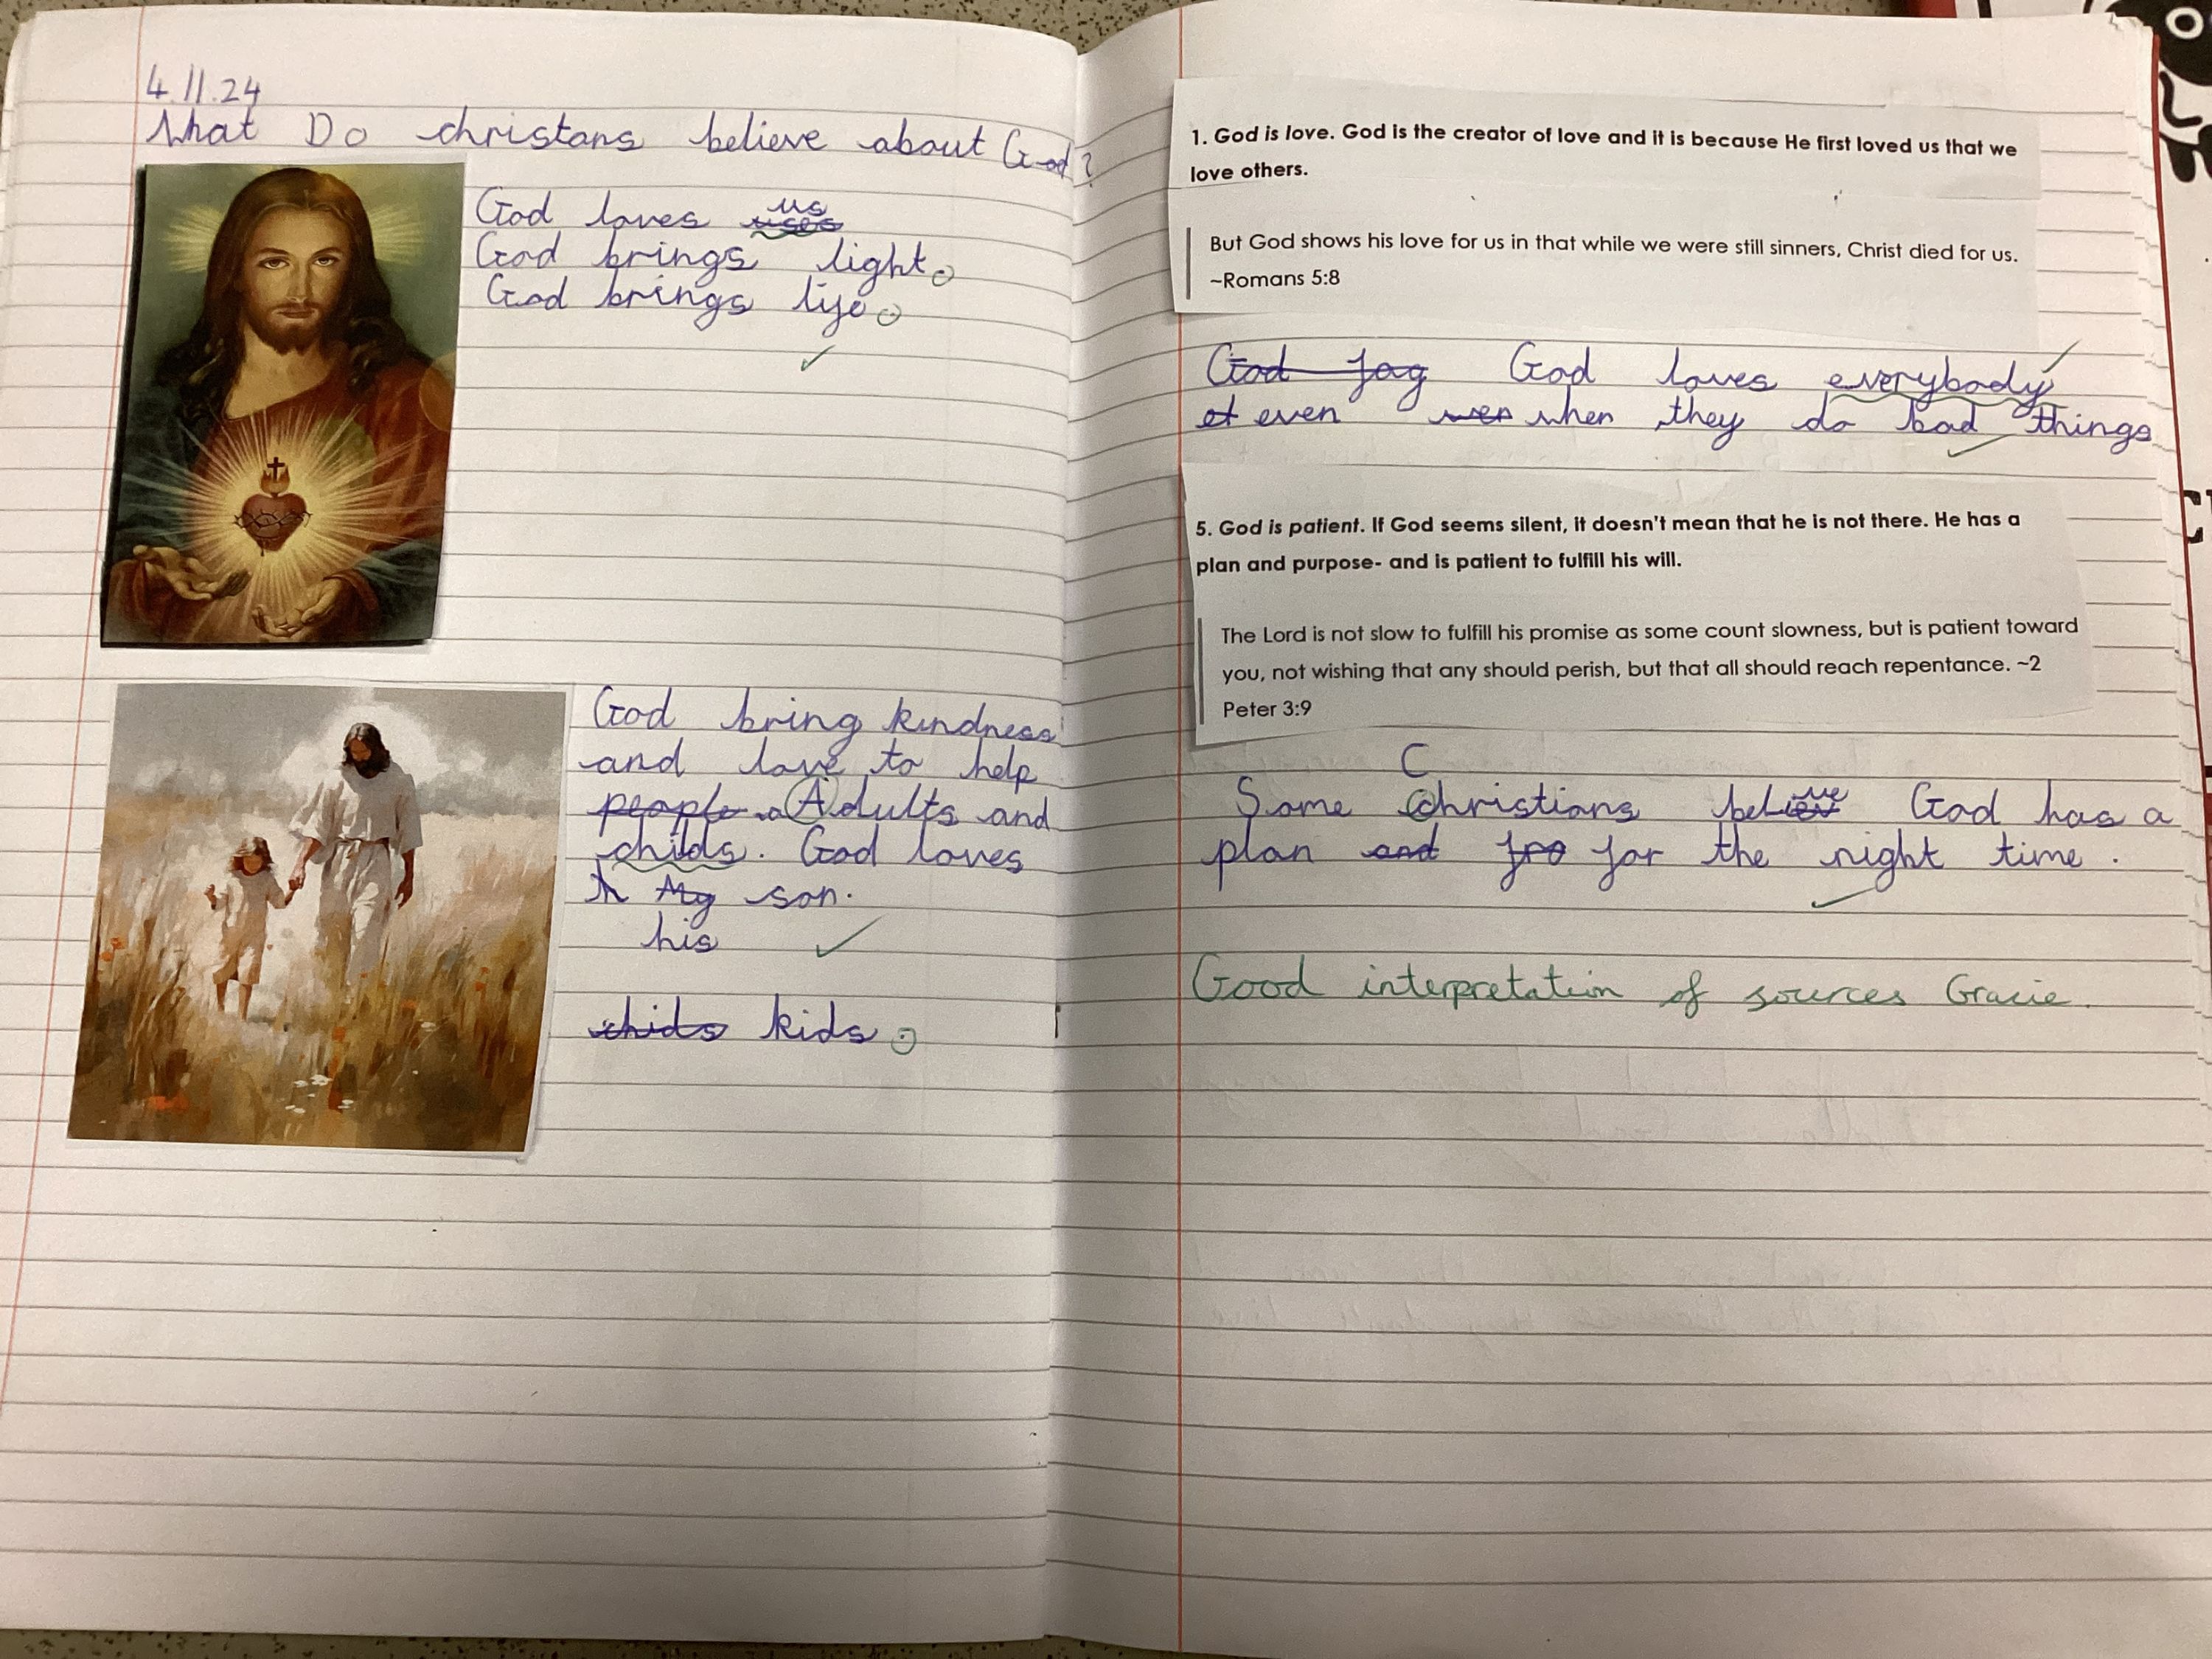 4.11.24
What Do christans believe about God?
God loves uses us
God brings light.
God brings life.
God bring kindness
and love to help
people a Adults and
childs. God loves
h My son.
his
chids kids.
1. God is love. God is the creator of love and it is because He first loved us that we
love others.
But God shows his love for us in that while we were still sinners, Christ died for us.
~Romans 5:8
God fog God loves everybody
et even wen when they do bad things
5. God is patient. If God seems silent, it doesn't mean that he is not there. He has a
plan and purpose- and is patient to fulfill his will.
The Lord is not slow to fulfill his promise as some count slowness, but is patient toward
you, not wishing that any should perish, but that all should reach repentance. ~2
Peter 3:9
C
Some christians believe God has a
plan and fro for the right time.
Good interpretation of sources Gracie.